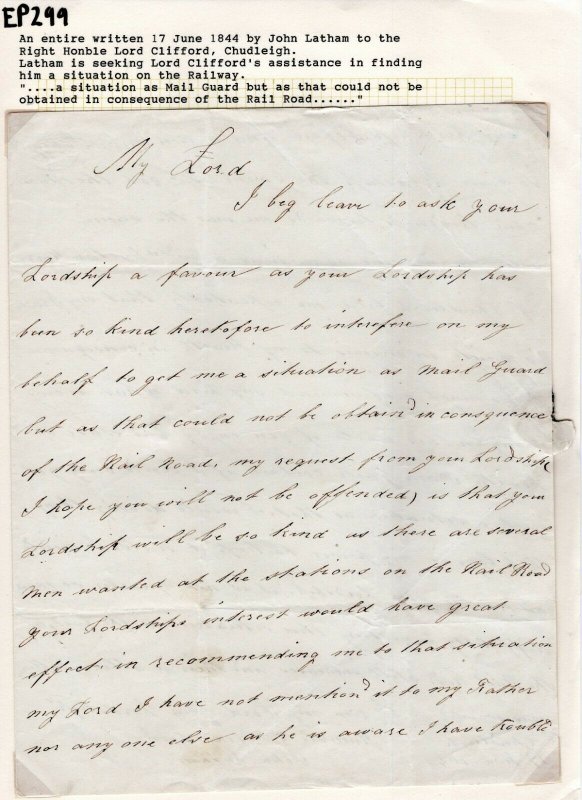 EP299
An entire written 17 June 1844 by John Latham to the
Right Honble Lord Clifford, Chudleigh.
Latham is seeking Lord Clifford's assistance in finding
him a situation on the Railway.
"....a situation as Mail Guard but as that could not be
obtained in consequence of the Rail Road......"
My Lord
I beg leave to ask your
Lordship a favour as your Lordship has
been so kind heretofore to interefere on my
behalf to get me a situation as Mail Guard
but as that could not be obtain'd in consquence
of the Rail Road, my request from your Lordship (
I hope you will not be offended) is that your
Lordship will be so kind as there are several
men wanted at the stations on the Rail Road
your Lordships interest would have great
effect in recommending me to that situation
my Lord I have not mention'd it to my Father
nor any one else as he is aware I have troubl'd